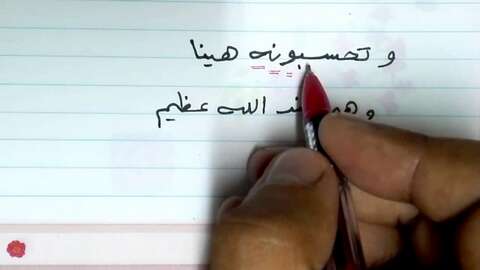 و تحسبونه هينا
و هو عند الله عظيم